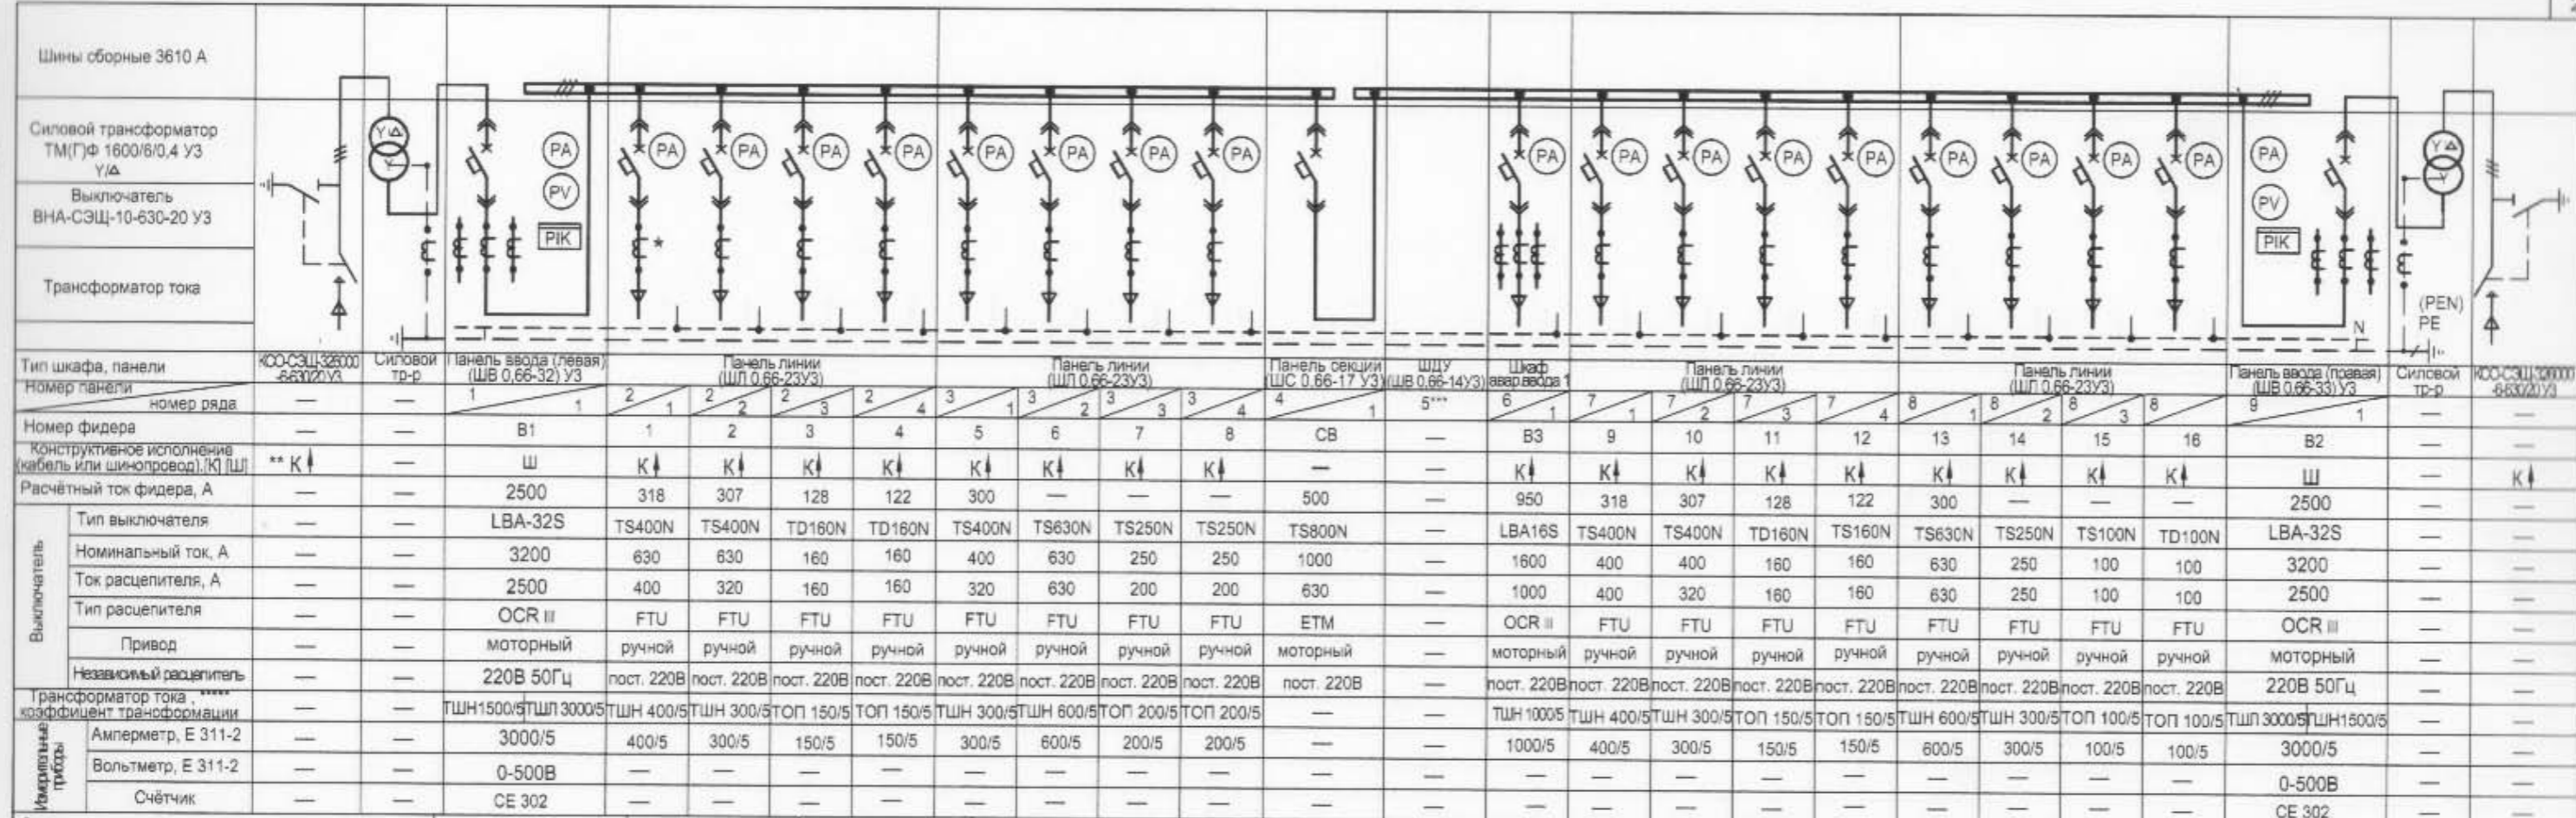 Шины сборные 3610 А
Силовой трансформатор
ТМ(Г)Ф 1600/6/0,4 У3
Y/Δ
Выключатель
ВНА-СЭЩ-10-630-20 У3
Трансформатор тока
Y/Δ Y PA PV PIK PA * PA PA PA PA PA PA PA PA PA PA PA PA PA PA PA PA PA PV PIK Y/Δ Y
(PEN)
PE
N
Тип шкафа, панели
КСО-СЭЩ-326000
-6-630/20 У3
Силовой
тр-р
Панель ввода (левая)
(ШВ 0,66-32) У3
Панель линии
(ШЛ 0,66-23У3)
Панель линии
(ШЛ 0,66-23У3)
Панель секции
(ШС 0,66-17 У3)
ШДУ
(ШВ 0,66-14У3)
Шкаф
авар.ввода 1
Панель линии
(ШЛ 0,66-23У3)
Панель линии
(ШЛ 0,66-23У3)
Панель ввода (правая)
(ШВ 0,66-33) У3
Силовой
тр-р
КСО-СЭЩ-326000
-6-630/20 У3
Номер панели
номер ряда
— — 1/1 2/1 2/2 2/3 2/4 3/1 3/2 3/3 3/4 4/1 5*** 6/1 7/1 7/2 7/3 7/4 8/1 8/2 8/3 8 9/1 — —
Номер фидера — — В1 1 2 3 4 5 6 7 8 СВ — В3 9 10 11 12 13 14 15 16 В2 — —
Конструктивное исполнение
(кабель или шинопровод),[К] [Ш]
** К — Ш К К К К К К К К — — К К К К К К К К К Ш — К
Расчётный ток фидера, А — — 2500 318 307 128 122 300 — — — 500 — 950 318 307 128 122 300 — — — 2500 — —
Выключатель
Тип выключателя — — LBA-32S TS400N TS400N TD160N TD160N TS400N TS630N TS250N TS250N TS800N — LBA16S TS400N TS400N TD160N TS160N TS630N TS250N TS100N TD100N LBA-32S — —
Номинальный ток, А — — 3200 630 630 160 160 400 630 250 250 1000 — 1600 400 400 160 160 630 250 100 100 3200 — —
Ток расцепителя, А — — 2500 400 320 160 160 320 630 200 200 630 — 1000 400 320 160 160 630 250 100 100 2500 — —
Тип расцепителя — — OCR III FTU FTU FTU FTU FTU FTU FTU FTU ETM — OCR II FTU FTU FTU FTU FTU FTU FTU FTU OCR III — —
Привод — — моторный ручной ручной ручной ручной ручной ручной ручной ручной моторный — моторный ручной ручной ручной ручной ручной ручной ручной ручной моторный — —
Независимый расцепитель — — 220В 50Гц пост. 220В пост. 220В пост. 220В пост. 220В пост. 220В пост. 220В пост. 220В пост. 220В пост. 220В — пост. 220В пост. 220В пост. 220В пост. 220В пост. 220В пост. 220В пост. 220В пост. 220В пост. 220В 220В 50Гц — —
Трансформатор тока , *****
коэффицент трансформации
— — ТШН1500/5 ТШЛ 3000/5 ТШН 400/5 ТШН 300/5 ТОП 150/5 ТОП 150/5 ТШН 300/5 ТШН 600/5 ТОП 200/5 ТОП 200/5 — — ТШН 1000/5 ТШН 400/5 ТШН 300/5 ТОП 150/5 ТОП 150/5 ТШН 600/5 ТШН 300/5 ТОП 100/5 ТОП 100/5 ТШЛ 3000/5 ТШН1500/5 — —
Измерительные
приборы
Амперметр, Е 311-2 — — 3000/5 400/5 300/5 150/5 150/5 300/5 600/5 200/5 200/5 — — 1000/5 400/5 300/5 150/5 150/5 600/5 300/5 100/5 100/5 3000/5 — —
Вольтметр, Е 311-2 — — 0-500В — — — — — — — — — — — — — — — — — — — 0-500В — —
Счётчик — — СЕ 302 — — — — — — — — — — — — — — — — — — — СЕ 302 — —